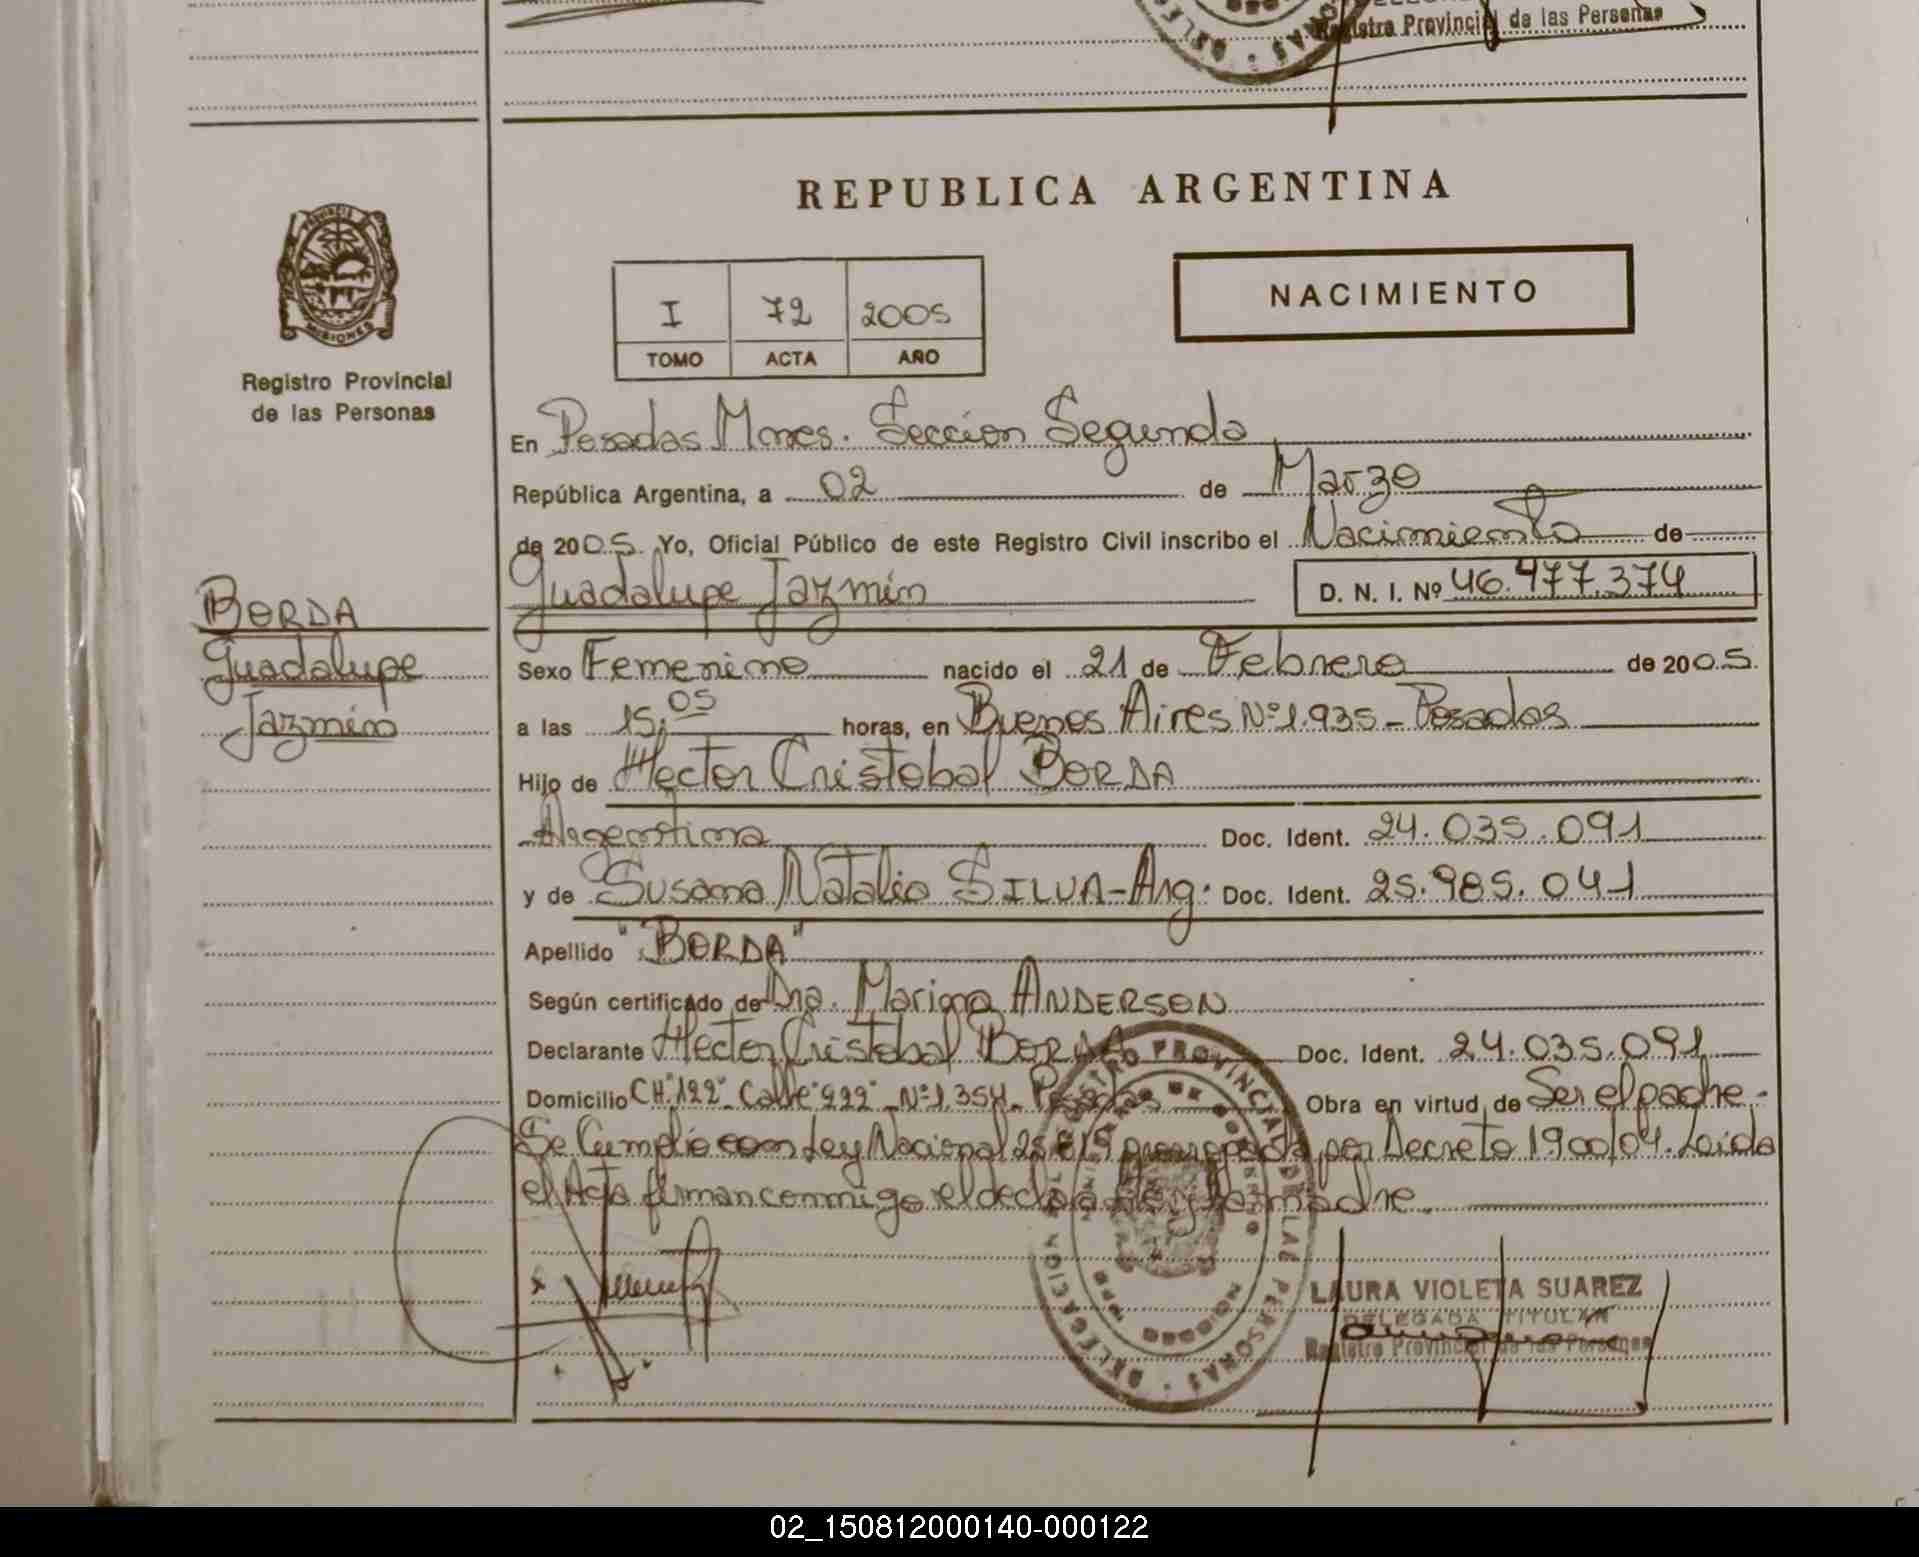 Registro Provincial de las Personas
REPUBLICA ARGENTINA
PROVINCIA DE
MISIONES
Registro Provincial
de las Personas
I 72 2005
TOMO ACTA AÑO
NACIMIENTO
En Posadas Mnes. Sección Segunda
República Argentina, a 02 de Marzo
de 2005. Yo, Oficial Público de este Registro Civil inscribo el Nacimiento de
Guadalupe Jazmín D. N. I. Nº 46.477.374
BORDA
Guadalupe
Jazmín
Sexo Femenino nacido el 21 de Febrero de 2005.
a las 15:05 horas, en Buenos Aires Nº 1.935 - Posadas
Hijo de Hector Cristobal BORDA
Argentina Doc. Ident. 24.035.091
y de Susana Natalia SILVA - Arg. Doc. Ident. 25.985.041
Apellido "BORDA"
Según certificado de Dra. Mariana ANDERSON
Declarante Hector Cristobal BORDA Doc. Ident. 24.035.091
Domicilio CH "122" Calle "222" - Nº 1.354 - Posadas Obra en virtud de Ser el padre.
Se Cumplio con Ley Nacional 25.819 prorrogada por Decreto 1900/04. Leida
el Acta firman conmigo el declarante y la madre.
LAURA VIOLETA SUAREZ
DELEGADA TITULAR
Registro Provincial de las Personas
02_150812000140-000122